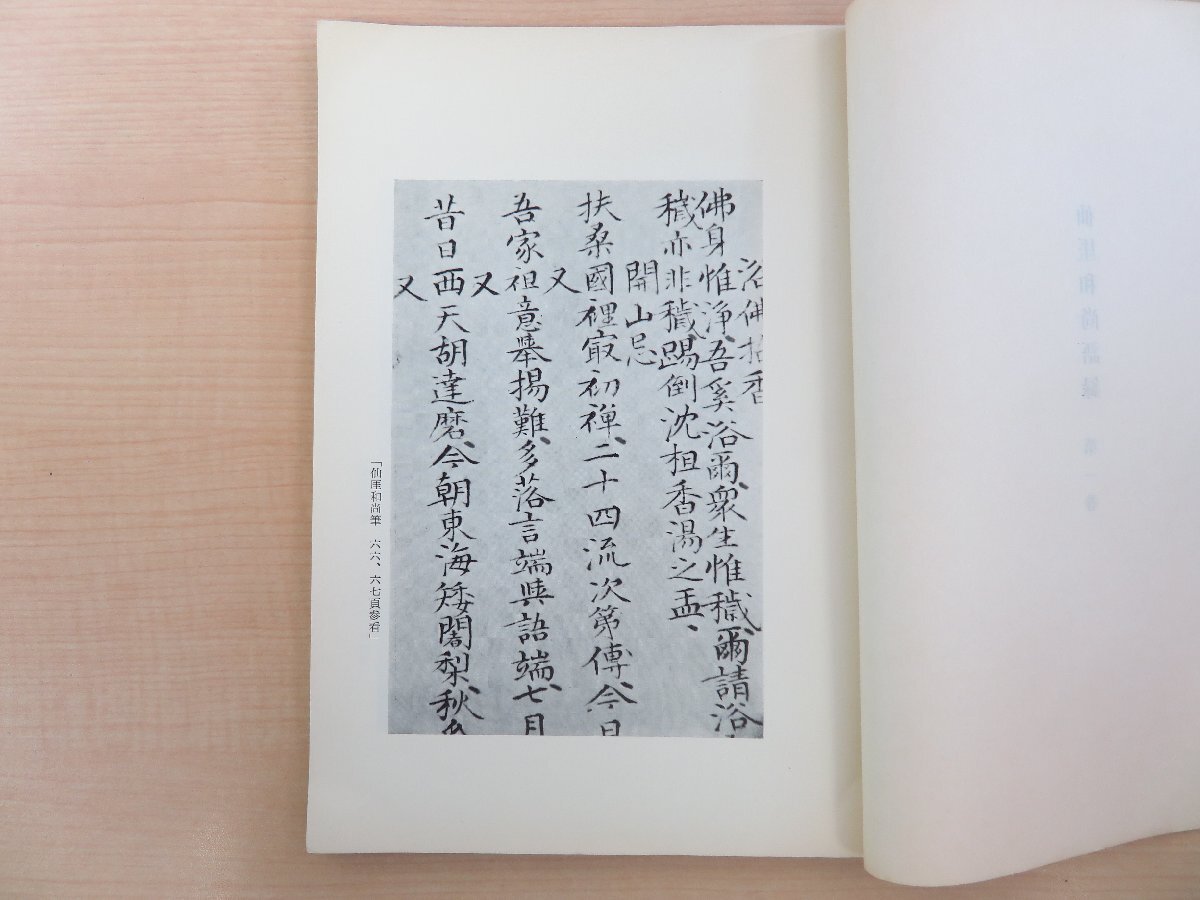 浴佛拈香
佛身惟淨、吾奚浴爾、衆生惟穢、爾請浴
穢亦非穢、踢倒沈柤香湯之盂、
開山忌
扶桑國裡㝡初禪、二十四流次第傳、今日
又
吾家祖意擧揚難、多落言端與語端、七月
又
昔日西天胡達磨、今朝東海矮闍梨、秋
又
「仙厓和尚筆　六六、六七頁参看」
仙厓和尚語錄　第一卷